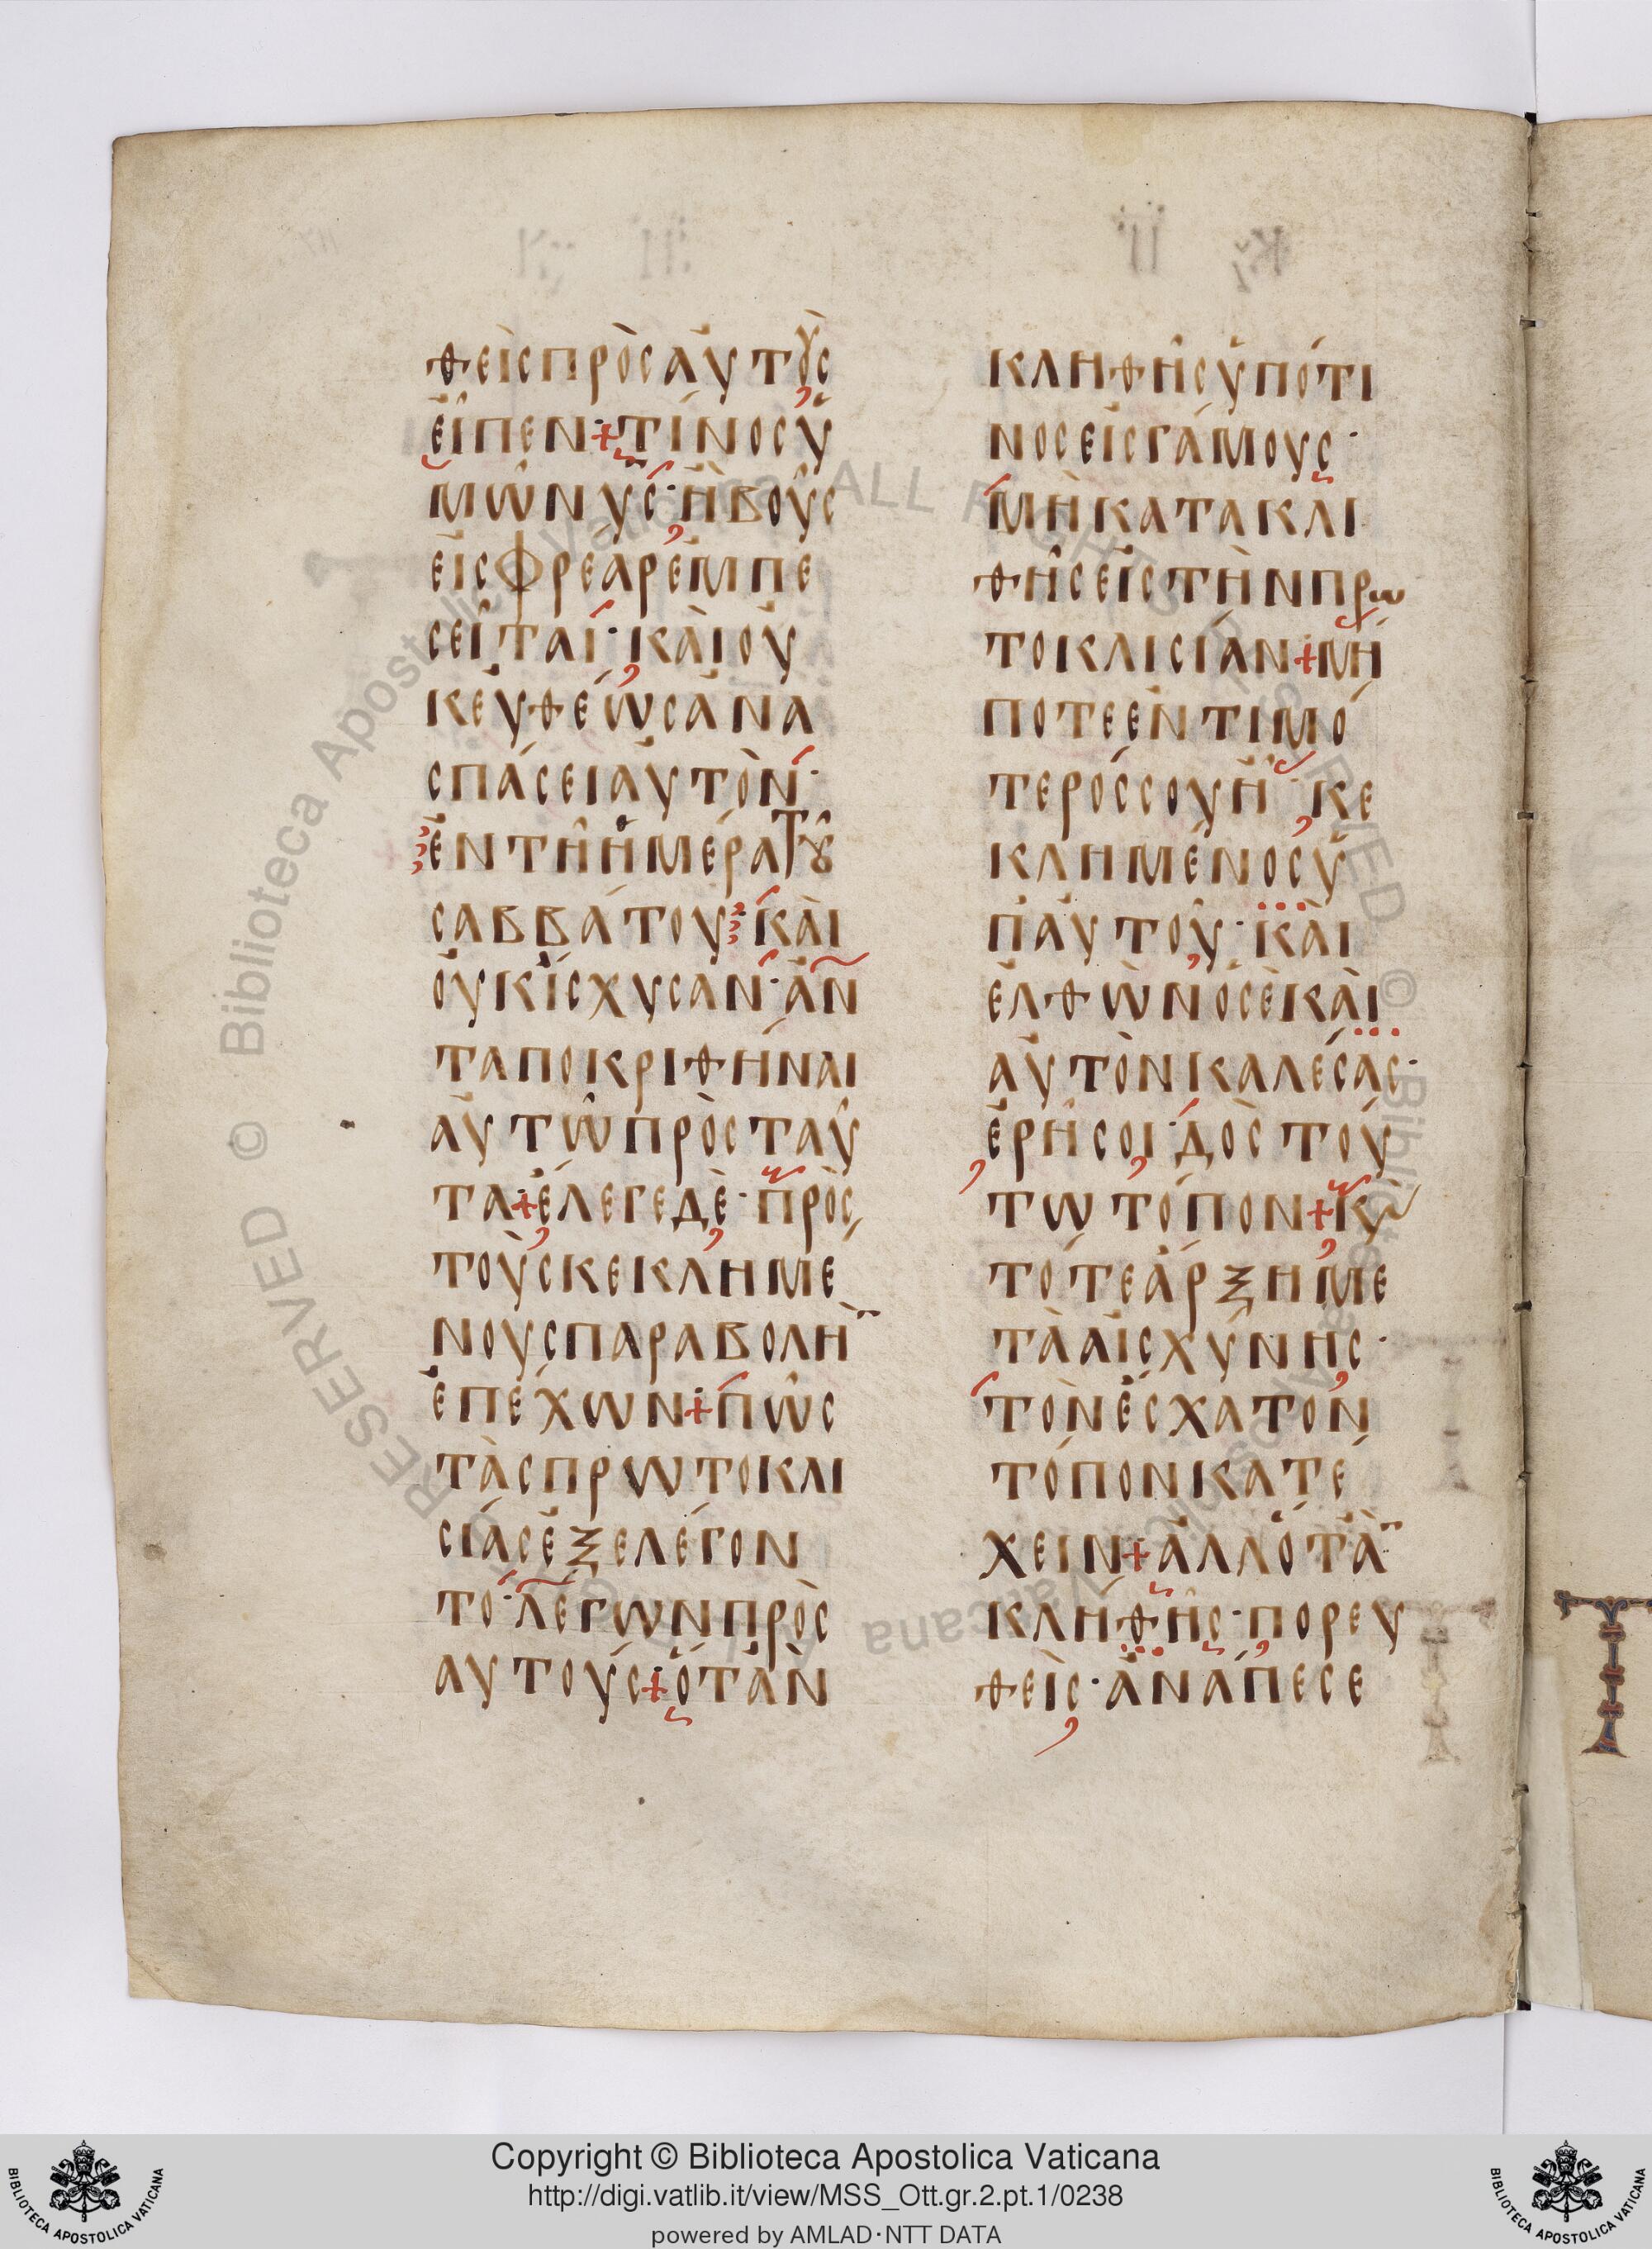 θεὶς πρὸς αὐτοὺς
εἶπεν· τίνος ὑ
μῶν ὑς· ἢ βοῦς
εἰς φρέαρ ἐμπε
σεῖται· καὶ οὐ
κ εὐθέως ἀνα
σπάσει αὐτὸν·
ἐν τῇ ἡμέρα τοῦ
σαββάτου· καὶ
οὐκ ἴσχυσαν· ἀν
ταποκριθῆναι
αὐτῷ πρὸς ταῦ
τα· ἔλεγε δὲ· πρὸς
τοὺς κεκλημέ
νους παραβολὴ̄
ἐπέχων· πῶς
τὰς πρωτοκλι
σίας ἐξελέγον
το· λέγων πρὸς
αυτούς· ὅταν
κληθῇς ὑπό τι
νος εἰς γάμους·
μὴ κατακλι
θῇς εἰς τὴν πρω
τοκλισίαν· μή
ποτε ἐντιμό
τερός σου ἦ· κε
κλημένος ὑ
π' αὐτοῦ· καὶ
ἐλθὼν ὁ σὲ καὶ
αὐτὸν καλέσας·
ἐρῆ σοι· δὸς τού
τω τόπον· κ̀
τότε ἄρξη με
τὰ αἰσχύνης·
τὸν ἔσχατον
τόπον κατέ
χειν· ἀλλ' ὅτὰ̄
κληθῇς· πορευ
θεὶς· ἀνάπεσε
Copyright © Biblioteca Apostolica Vaticana
http://digi.vatlib.it/view/MSS_Ott.gr.2.pt.1/0238
powered by AMLAD·NTT DATA
BIBLIOTECA APOSTOLICA VATICANA
BIBLIOTECA APOSTOLICA VATICANA